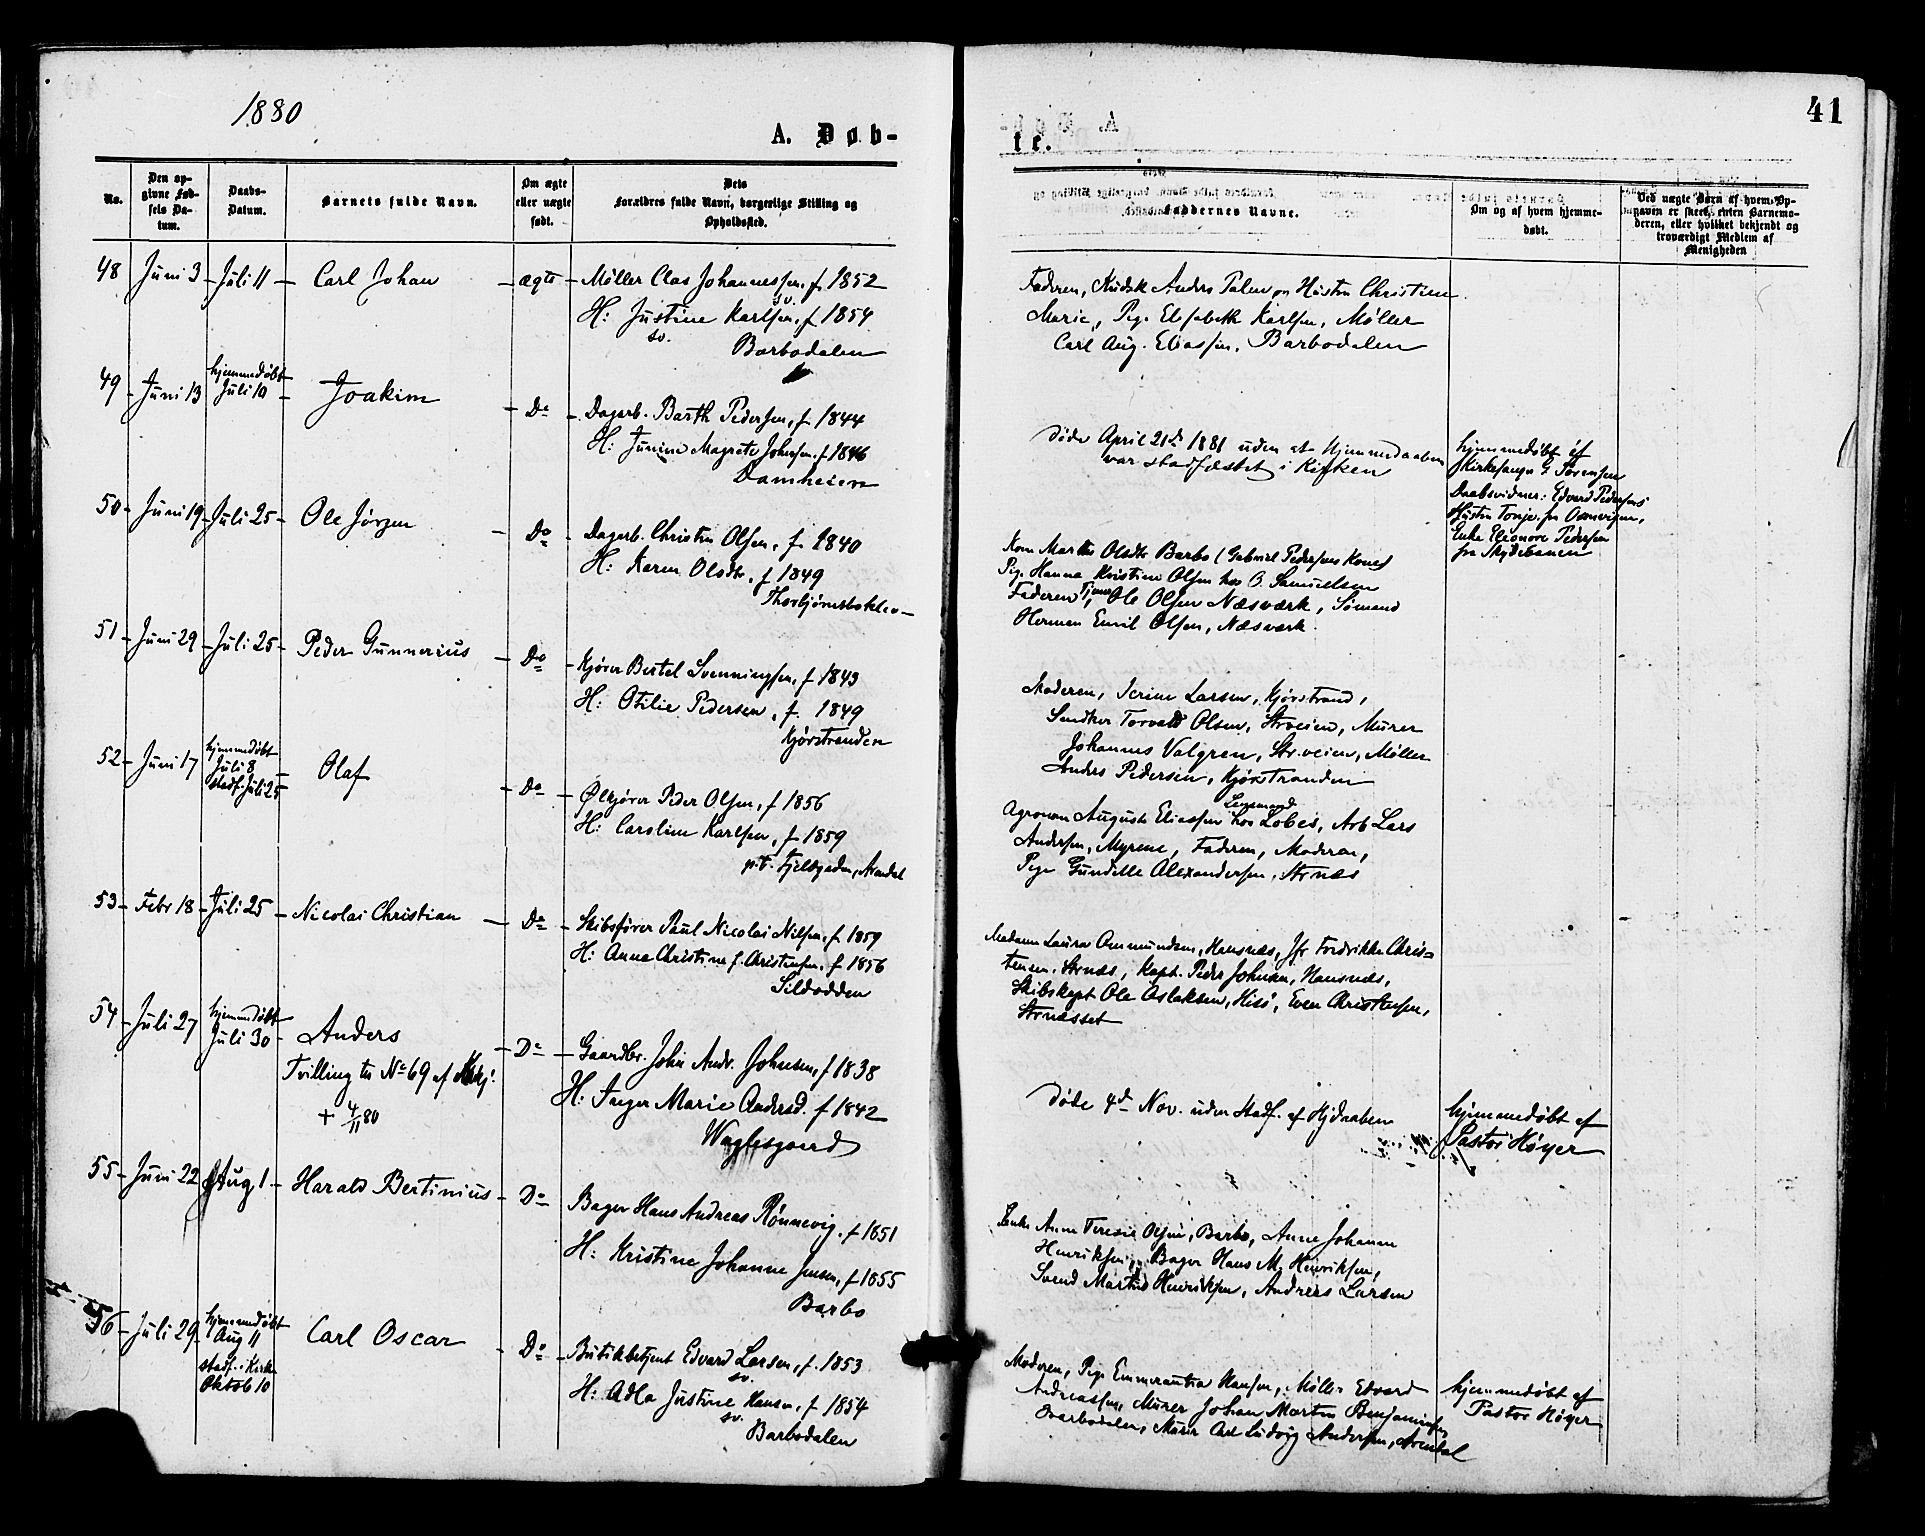 1880
A. Døb-
No.
Den op-
givne Fød-
sels Da-
tum.
Daabs-
Datum.
Barnets fulde Navn.
Om ægte
eller uægte
født.
Dets
Forældres fulde Navn, borgerlige Stilling og
Opholdssted.
48 Juni 3 Juli 11 Carl Johan ægte Møller Clas Johannessen, f 1852
sv.
H: Justine Karlsen, f 1854
sv.
Barbodalen
49 Juni 13 hjemmedøbt
Juli 10 Joakim Do Dagarb. Barth Pedersen, f 1844
H: Junine Magrete Johnsen f 1846
Damheien
50 Juni 19 Juli 25 Ole Jörgen Do Dagarb. Christen Olsen, f 1840
H: Karen Olsdtr, f 1849
51 Juni 29 Juli 25 Peder Gunnerius Do Kjører Bertel Svenningsen, f 1843
H: Otilie Pedersen, f. 1849
Kjörstranden
52 Juni 17 hjemmedøbt
Juli 8
stadf. Juli 25 Olaf Do Ølkjører Peder Olsen, f 1856
H: Caroline Karlsen, f 1859
p.t. Arendal
53 Febr 18 Juli 25 Nicolai Christian Do Skibsfører Paul Nicolai Nilsen, f 1859
H: Anna Christine f. Christensen, f 1856
Sildodden
54 Juli 27 hjemmedøbt
Juli 30 Anders Do Gaardbr. John Andr. Johnsen, f 1838
Tvilling til No 69 af
+ 4/11 80
H: Inger Marie Andersd. f 1842
55 Juni 22 Aug 1 Harald Bertinius Do Bager Hans Andreas Rönnevig, f 1851
H: Kristine Johanne Jensen, f 1855
Barbo
56 Juli 29 hjemmedøbt
Aug 11
stadf. i Kirken
Oktob 10 Carl Oscar Do Butikbetjent Edvard Larsen, f. 1853
sv.
H: Adla Justine Hansen, f 1854
sv.
Barbodalen
41
te.
Faddernes Navne.
Om og af hvem hjemme-
døbt.
Ved uægte Børn af hvem Op-
gavin er skeet, enten Barnemo-
deren, eller hvilket bekjendt og
troværdigt Medlem af
Menigheden
Faderen, Anders Palm og Hustru Christine
Marie, Pige Elisabeth Karlsen, Møller
Carl Aug. Eliassen, Barbodalen
døde April 21de 1881 uden at Hjemmedaaben
var stadfæstet i Kirken
hjemmedøbt af
Kirkesanger G. Sørensen
Daabsvidner: Edvard Pedersens
Hustru Tonje fra
Enke Eleonore Pedersen
fra Skydebanen
Kone Marthe Olsdtr Barbo (Gabriel Pedersens Kone)
Pige Hanna Kristine Olsen hos O. Samuelsen
Faderen, Ole Olsen Næsværk, Sömand
Herman Emil Olsen, Næsværk.
Moderen, Serine Larsen, Kjörstrand,
Torvald Olsen, Str.veien, Murer
Johannes Valgren, Str.veien, Møller
Anders Pedersen, Kjörstranden
Lensmand
Agronom August Eliassen hos Lobes, Arb Lars
Andersen, Myrene, Faderen, Moderen,
Pige Gundelle Alexandersen, Strnæs
Madam Laura Ommundsen, Hansnæs, Jfr Fredrikke Chris-
tensen, Strnæs, Kapt. Peder Johnsen, Hansnæs,
Skibskapt Ole Aslaksen, Hisö, Even Christensen,
Strnæsset
døde 4de Nov. uden Stadf. af Hjdaaben
hjemmedøbt af
Pastor Høyer
Enke Anne Teresie Olsen, Barbo, Anne Johanne
Henriksen, Bager Hans M. Henriksen,
Svend Martin Henriksen, Andreas Larsen
Moderen, Pige Emmerantia Hansen, Møller Edvard
Andreassen, Murer Johan Martin Benjaminsen
Barbodalen, Murer Carl Ludvig Andersen, Arendal
hjemmedøbt af
Pastor Høyer